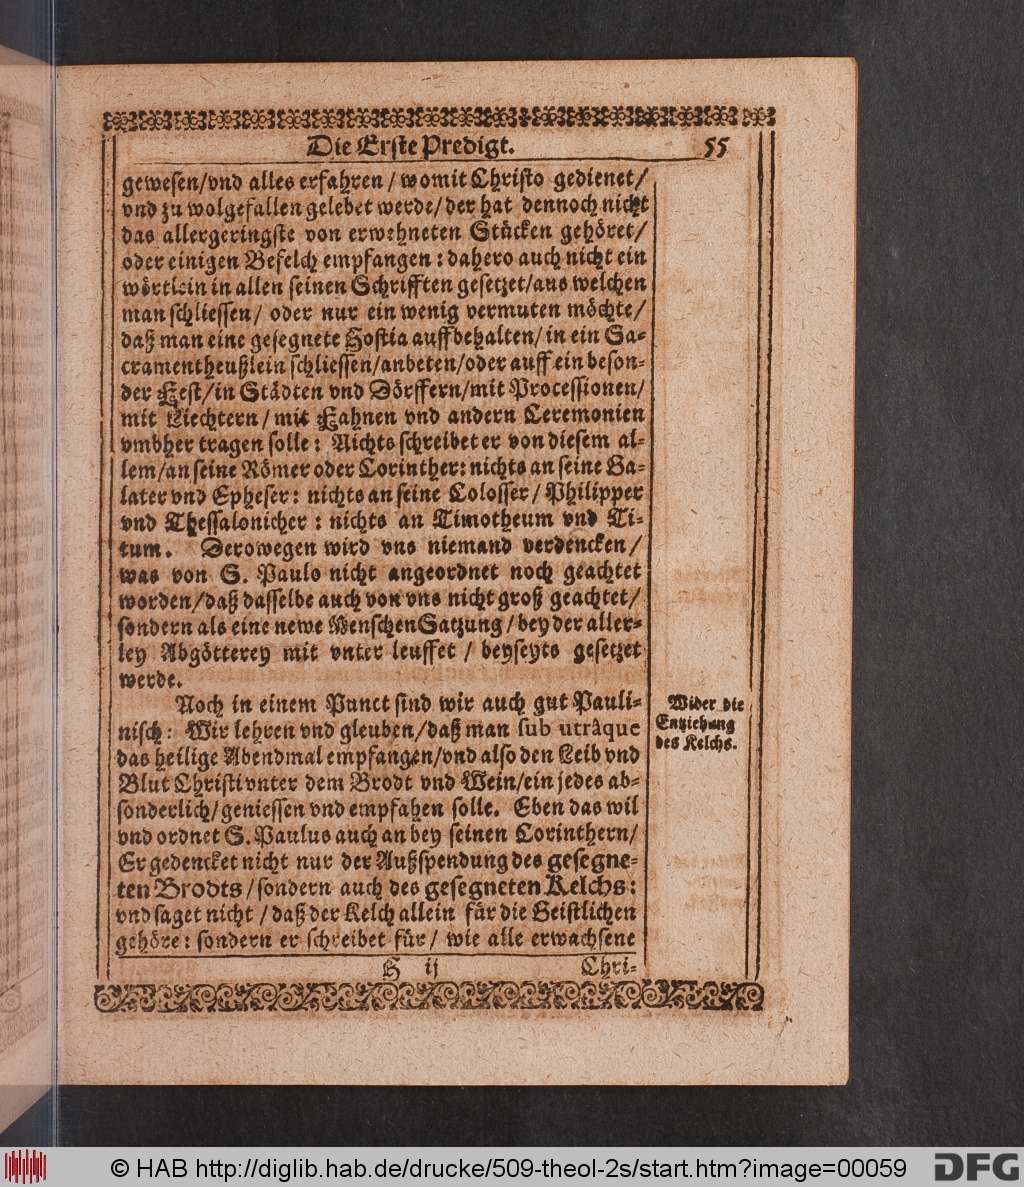 Die Erste Predigt. 55
gewesen/vnd alles erfahren/womit Christo gedienet/
vnd zu wolgefallen gelebet werde/der hat dennoch nicht
das allergeringste von erwehneten Stücken gehöret/
oder einigen Befelch empfangen: dahero auch nicht ein
wörtlein in allen seinen Schrifften gesetzet/aus welchen
man schliessen/ oder nur ein wenig vermuten möchte/
daß man eine gesegnete Hostia auffbehalten/in ein Sa-
cramentheußlein schliessen/anbeten/oder auff ein beson-
der Fest/in Städten vnd Dörffern/mit Processionen/
mit Liechtern/mit Fahnen vnd andern Ceremonien
vmbher tragen solle: Nichts schreibet er von diesem al-
lem/an seine Römer oder Corinther: nichts an seine Ga-
later vnd Epheser: nichts an seine Colosser/ Philipper
vnd Thessalonicher: nichts an Timotheum vnd Ti-
tum. Derowegen wird vns niemand verdencken/
was von S. Paulo nicht angeordnet noch geachtet
worden/daß dasselbe auch von vns nicht groß geachtet/
sondern als eine newe MenschenSatzung/bey der aller-
ley Abgötterey mit vnter leuffet/ beyseyts gesetzet
werde.
Noch in einem Punct sind wir auch gut Pauli-
nisch: Wir lehren vnd gleuben/daß man sub utrâque
das heilige Abendmal empfangen/vnd also den Leib vnd
Blut Christi vnter dem Brodt vnd Wein/ein jedes ab-
sonderlich/geniessen vnd empfahen solle. Eben das wil
vnd ordnet S. Paulus auch an bey seinen Corinthern/
Er gedencket nicht nur der Außspendung des gesegne-
ten Brodts/sondern auch des gesegneten Kelchs:
vnd saget nicht/daß der Kelch allein für die Geistlichen
gehöre: sondern er schreibet für/ wie alle erwachsene
H ij Chri-
Wider die
Entziehung
des Kelchs.
© HAB http://diglib.hab.de/drucke/509-theol-2s/start.htm?image=00059
DFG